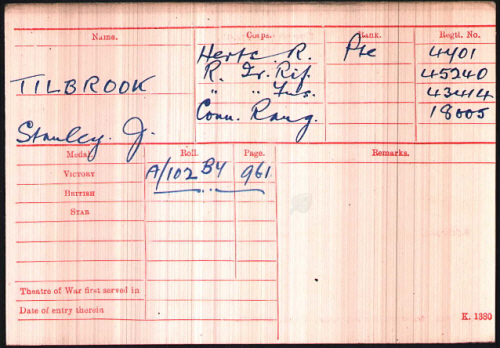 Name. Corps. Rank. Regtl. No.
Herts. R. Pte 4401
TILBROOK R. Ir. Rif. 45240
" " Fus. 43414
Stanley. J. Conn. Rang. 18005
Medal. Roll. Page. Remarks.
VICTORY A/102 B4 961
BRITISH — .. —
STAR
Theatre of War first served in
Date of entry therein
K. 1380